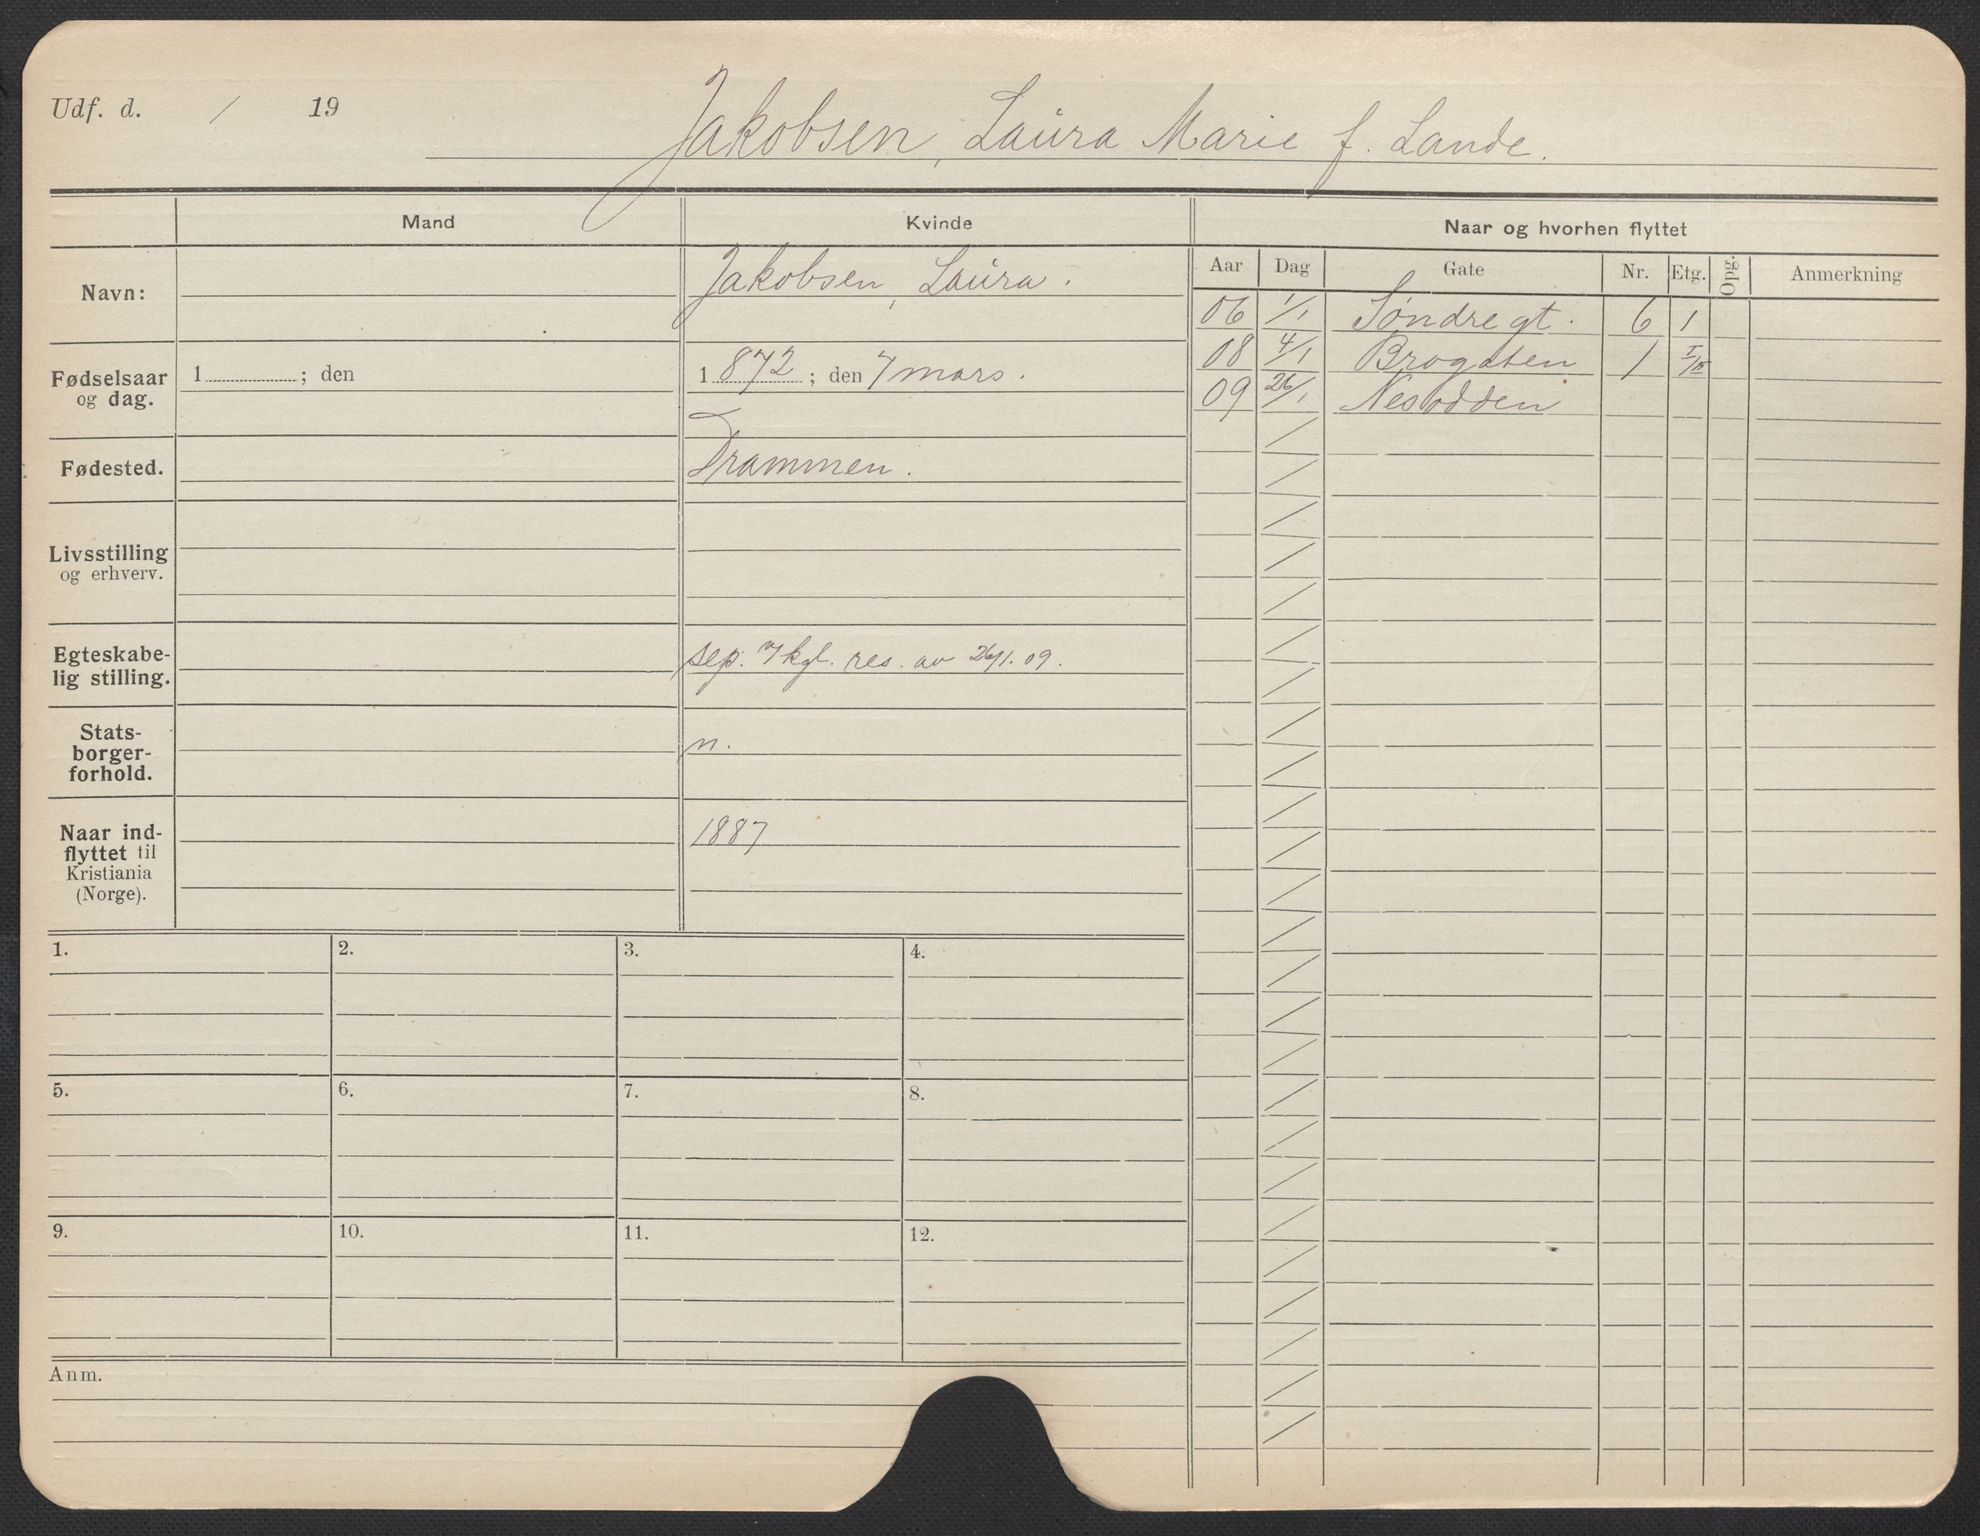 Udf. d. / 19
Jakobsen, Laura Marie f. Lande.
Mand Kvinde Naar og hvorhen flyttet
Aar Dag Gate Nr. Etg. Opg. Anmerkning
Navn: Jakobsen, Laura.
06 1/1 Søndre gt. 6 1
08 4/1 Brogaten 1
09 26/1 Nesodden
Fødselsaar 1 ; den 1872 ; den 7 mars.
og dag.
Fødested. Drammen.
Livsstilling
og erhverv.
Egteskabe- sep. kgl. res. av 26/1. 09.
lig stilling.
Stats- n.
borger-
forhold.
Naar ind- 1887
flyttet til
Kristiania
(Norge).
1. 2. 3. 4.
5. 6. 7. 8.
9. 10. 11. 12.
Anm.